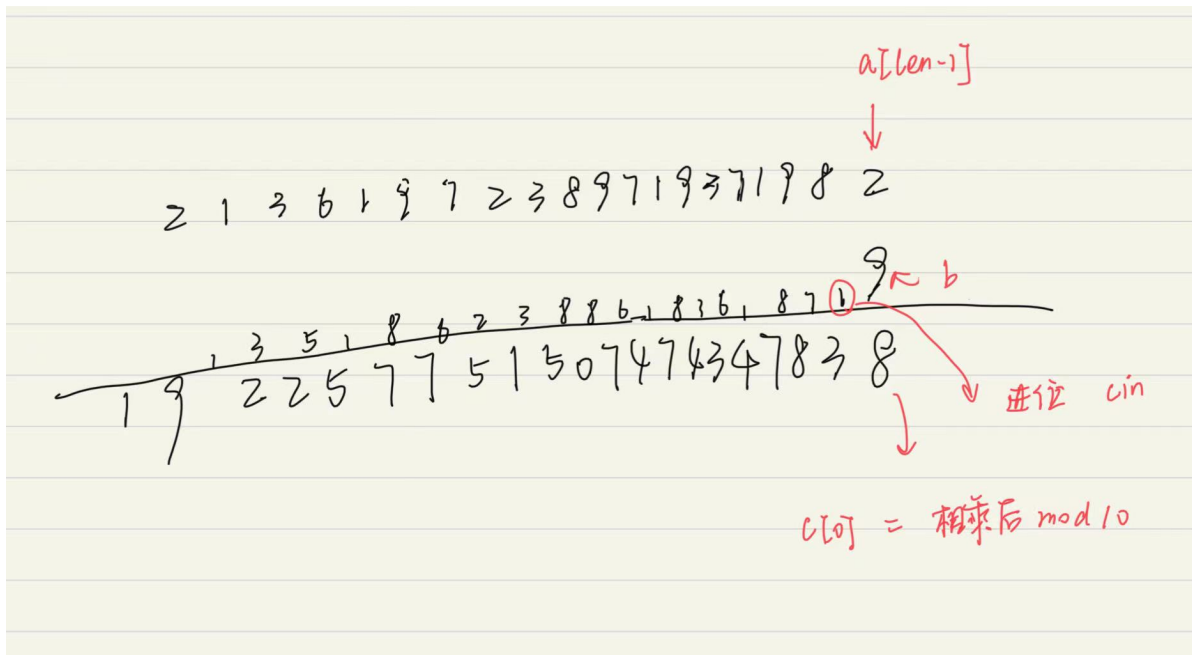 a[len-1]
2 1 3 6 1 9 7 2 3 8 9 7 1 9 3 7 1 9 8 2
9 b
1 3 5 1 8 6 2 3 8 8 6 1 8 3 6 1 8 7 1
1 9 2 2 5 7 7 5 1 5 0 7 4 7 4 3 4 7 8 3 8
进位 cin
c[0] = 相乘后 mod 10